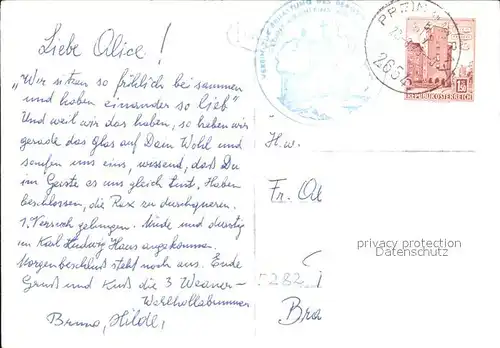 Liebe Alice!
"Wir sitzen so fröhlich beisammen
und haben einander so lieb"
Und weil wir das haben, so haben wir
gerade das Glas auf Dein Wohl und
saufen uns eins, wissend, daß Du
im Geiste es uns gleich tust. Haben
beschlossen, die Rax zu durchqueren.
1. Versuch gelungen. Müde und durstig
im Karl Ludwig Haus angekommen.
Morgenbeschluß steht noch aus. Ende
Gruß und Kuß die 3 Weaner-
Bruno, Hilde,
2654
REPUBLIK ÖSTERREICH
H.w.
Fr. Al
privacy protection
Datenschutz
5282
Bra